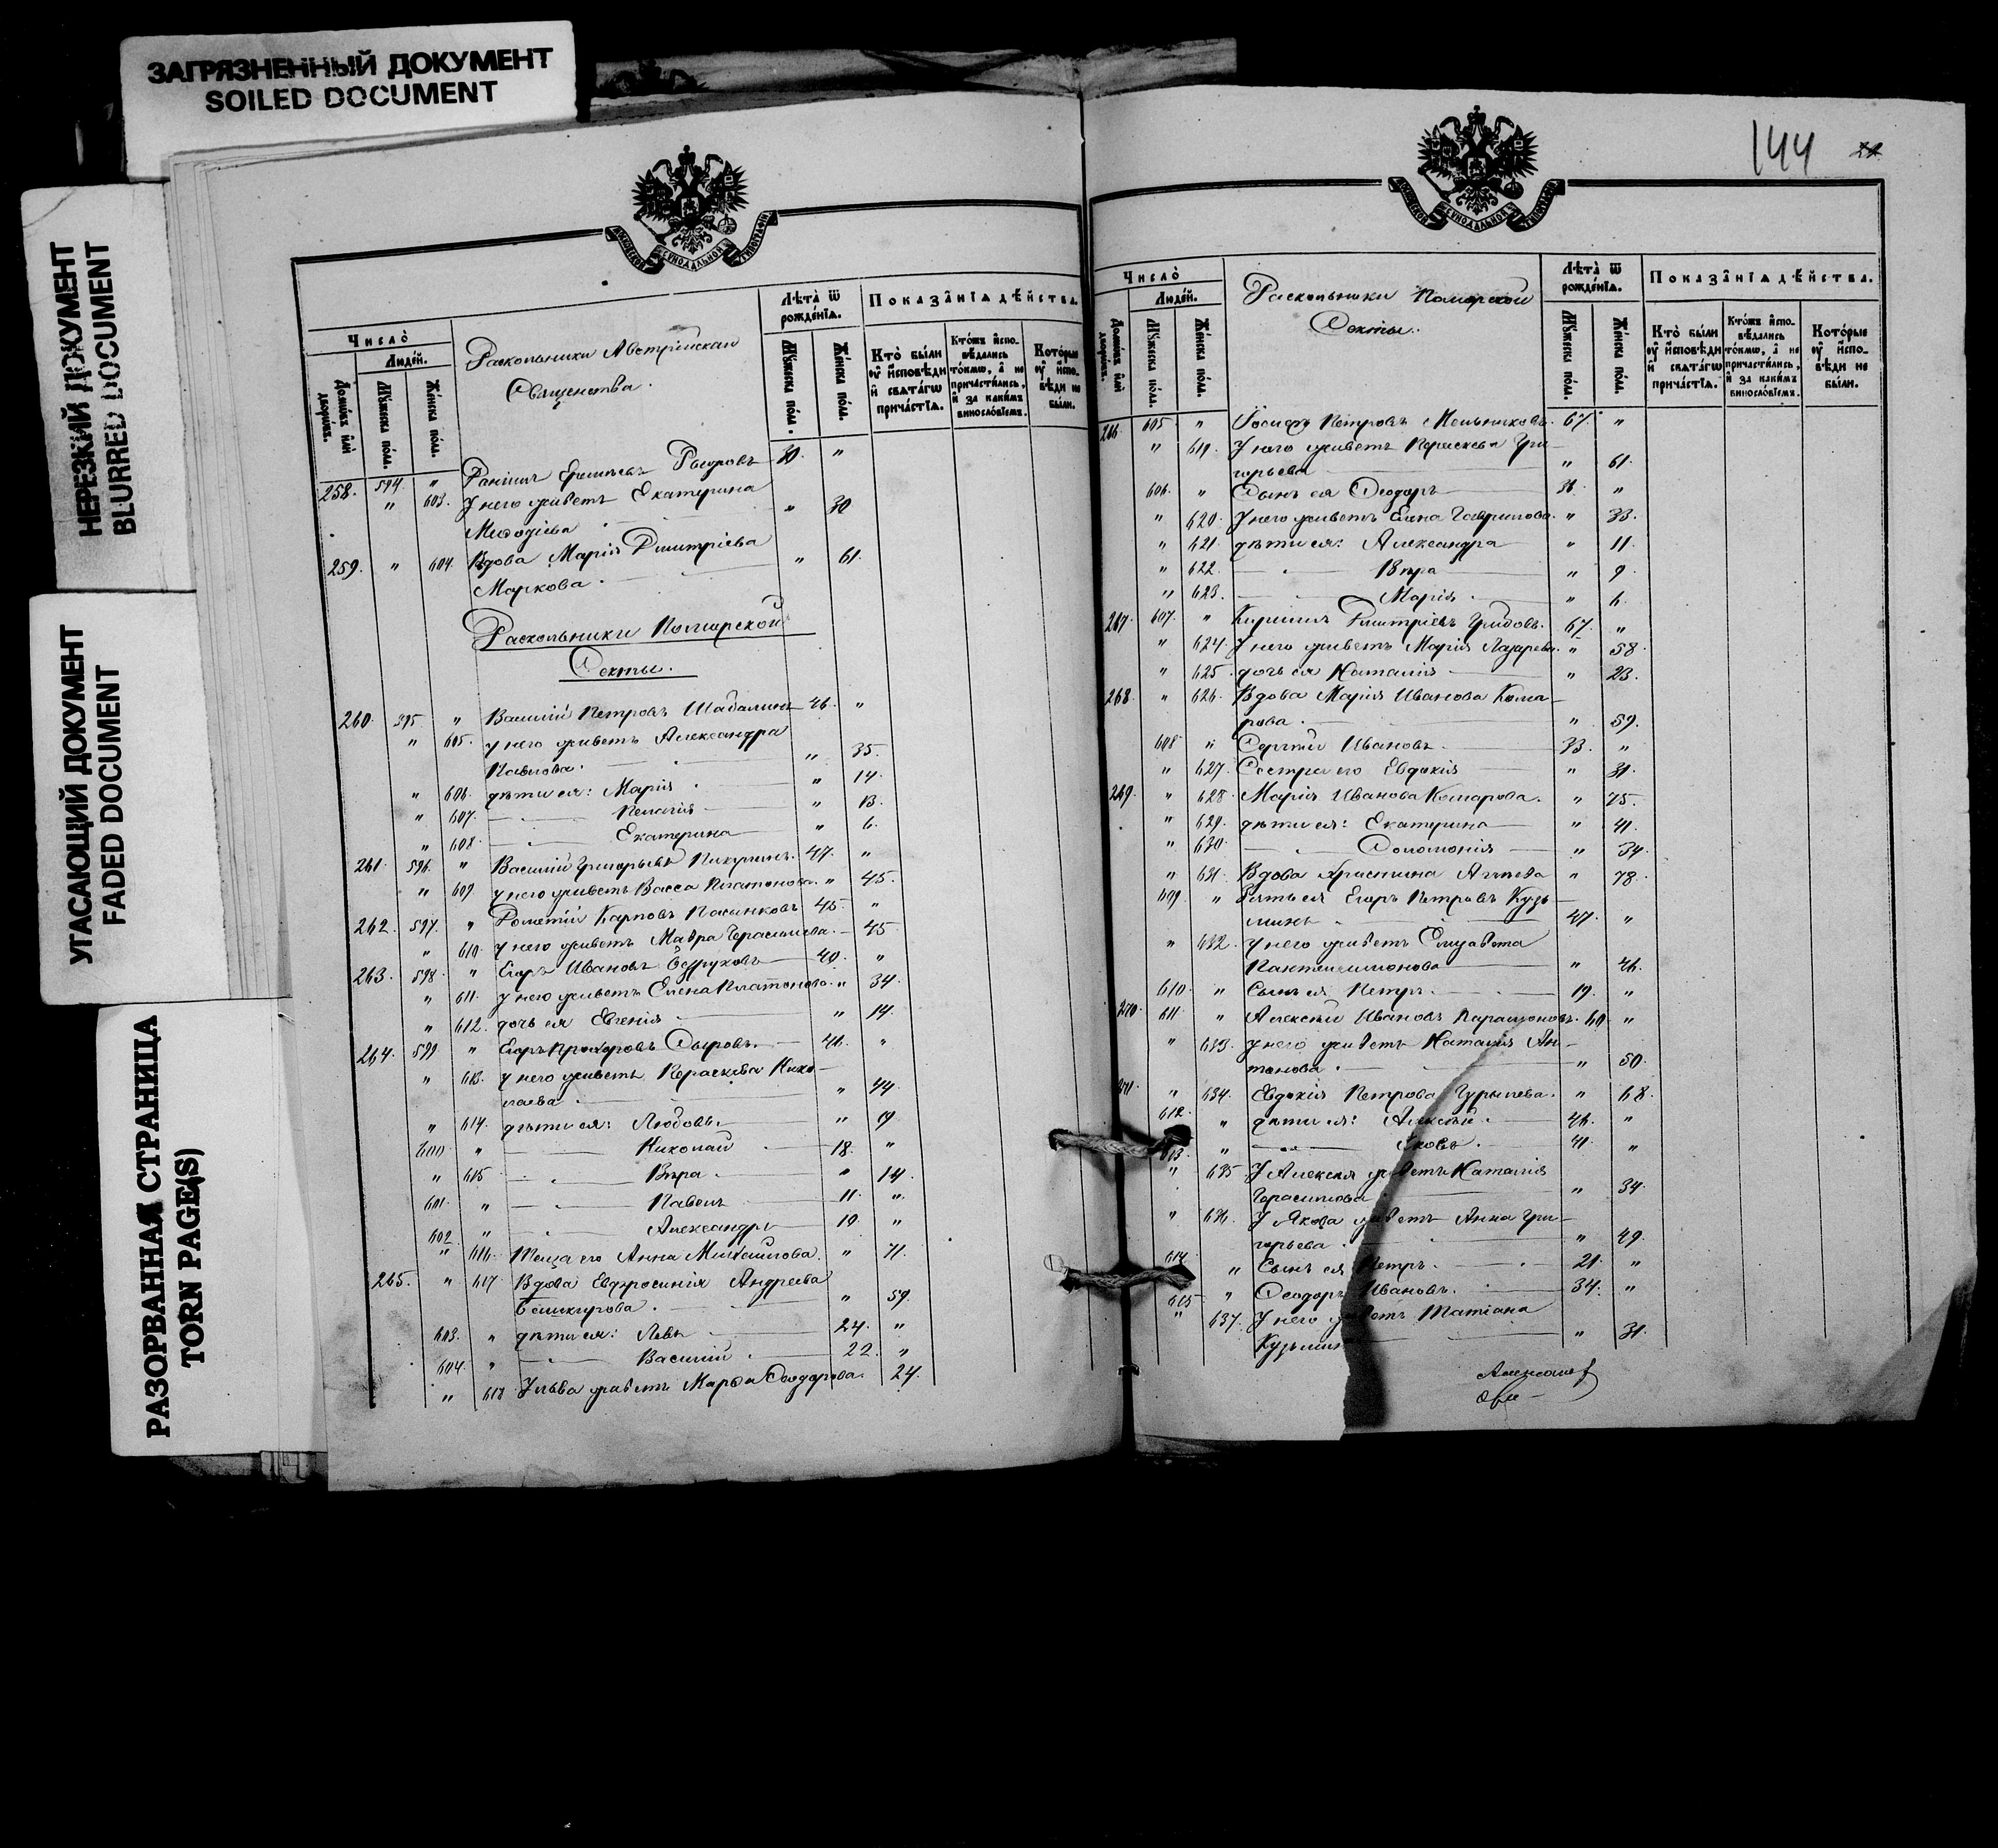 ЗАГРЯЗНЕННЫЙ ДОКУМЕНТ
SOILED DOCUMENT
НЕРЕЗКИЙ ДОКУМЕНТ
BLURRED DOCUMENT
УГАСАЮЩИЙ ДОКУМЕНТ
FADED DOCUMENT
РАЗОРВАННАЯ СТРАНИЦА
TORN PAGE(S)
Число̀
Людéй.
Домѡ́въ и҆лѝ дворѡ́въ.
Мꙋ́жеска пóла.
Же́нска пóла.
Раскольники Австрійскаго
Священства.
Лѣта̀ ѿ рожде́нїѧ.
Мꙋ́жеска пóла.
Же́нска пóла.
Показа̑нїѧ дѣ́йства.
Кто̀ бы́ли ᲂу҆ и҆́сповѣди и҆ свѧта́гѡ прича́стїѧ.
Кто́жъ и҆спо-вѣ́дались то́кмѡ, а҆ не причасти́лись, и҆ за каки́мъ винослóвїемъ.
Кото́рые ᲂу҆ и҆́спо-вѣди не бы́ли.
258. 594. " Ермиловъ 30 "
" 603. У него живетъ Екатерина
Меѳодіева " 30
259. " 604. Вдова Марія Димитріева
Маркова. " 61.
Раскольники Поморской
Секты.
260. 595 " Василій Петровъ Шабалинъ 46. "
" 605. У него живетъ Александра
Павлова. " 35.
" 606. дѣти ея: Марія " 14.
" 607. Пелагія " 13.
" 608. Екатерина " 6.
261. 596. " Василій Григорьевъ Пикулинъ. 47. "
" 609 У него живетъ Васса Платонова. " 45.
262. 597. " Карповъ Пасынковъ 45. "
" 610. У него живетъ Мавра Герасимова. 45.
263. 598 " Егоръ Ивановъ 40. "
" 611. У него живетъ Елена Платонова. " 34.
" 612. дочь ея Евгенія " 14.
264. 599 " Егоръ Прохоровъ Сыровъ. 46. "
" 613. У него живетъ Параскева Нико-
лаева. " 44.
" 614. дѣти ея: Любовь. " 19.
600 " Николай 18. "
" 615 Вѣра. " 14.
601. " Павелъ 11. "
602 " Александръ 10. "
" 616. Теща его Анна Михайлова. " 71.
265. " 617 Вдова Евфросинія Андреева
" 59.
603. " дѣти ея: Левъ 24. "
604. " Василій 22. "
" 618 У Льва живетъ Марѳа Ѳеодорова. 24.
144 21
Число̀
Людéй.
Домѡ́въ и҆лѝ дворѡ́въ.
Мꙋ́жеска пóла.
Же́нска пóла.
Раскольники Поморской
Секты.
Лѣта̀ ѿ рожде́нїѧ.
Мꙋ́жеска пóла.
Же́нска пóла.
Показа̑нїѧ дѣ́йства.
Кто̀ бы́ли ᲂу҆ и҆́сповѣди и҆ свѧта́гѡ прича́стїѧ.
Кто́жъ и҆спо-вѣ́дались то́кмѡ, а҆ не причасти́лись, и҆ за каки́мъ винослóвїемъ.
Кото́рые ᲂу҆ и҆́спо-вѣди не бы́ли.
266. 605. " Іосифъ Петровъ Мельниковъ. 67. "
" 619. У него живетъ Параскева Гри-
горьева " 61.
606. " Сынъ ея Ѳеодоръ 36. "
" 620. У него живетъ Елена Гаврилова. " 33.
" 621. дѣти ея: Александра " 11.
" 622. Вѣра " 9.
" 623. Марія " 6.
267. 607. " Кириллъ Димитріевъ Грибовъ. 67. "
" 624. У него живетъ Марія Лазарева. " 58.
" 625. дочь ея Наталія " 23.
268. " 626. Вдова Марія Иванова Кома-
рова. " 59.
608 " Сергѣй Ивановъ. 33. "
" 627. Сестра его Евдокія " 31.
269. " 628. Марія Иванова Комарова. " 75.
" 629. дѣти ея: Екатерина " 41.
" 630. Соломонія " 34.
" 631. Вдова Христина " 78.
609. " Зять ея Егоръ Петровъ Кузь-
минъ 47. "
" 632. У него живетъ Елизавета
Пантелеимонова " 46.
610. " Сынъ ея Петръ. 19. "
270. 611. " Алексѣй Ивановъ Парамоновъ. 60 "
" 633. У него живетъ Наталія Ан-
тонова. " 50.
271. " 634. Евдокія Петрова Гурылева. " 68.
612. " дѣти ея: Алексѣй. 46. "
613. " Яковъ. 41. "
" 635. У Алексѣя живетъ Наталія
Герасимова " 34.
" 636. У Якова живетъ Анна Гри-
горьева. " 49.
614. " Сынъ ея Петръ. 21. "
615 " Ѳеодоръ Ивановъ. 34. "
" 637. У него живетъ Татіана
31.